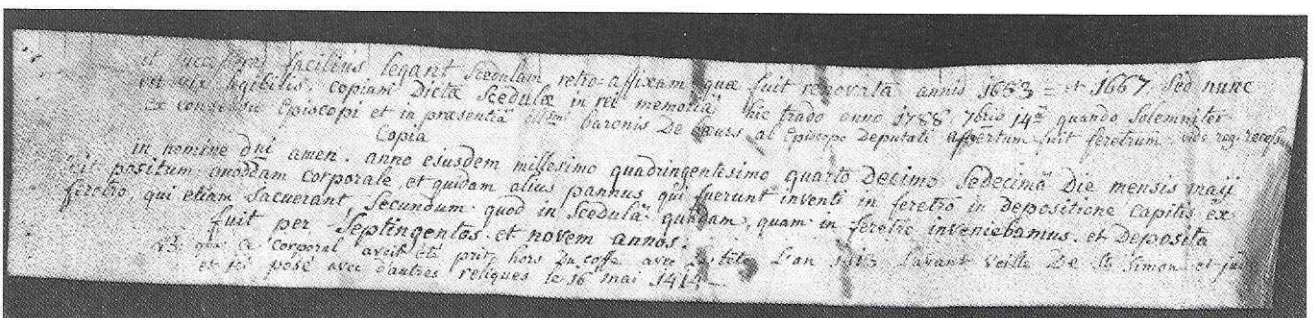 et successores facilius legant Scedulam retro-affixam quæ fuit renovata annis 1653 = et 1667. Sed nunc
est vix legibilis. copiam Dictæ Scedulæ in rei memoriã hic trado anno 1788 7bris 14ª quando Solemniter
Ex consensu Episcopi et in præsentiã baronis De ab Episcopo Deputati apertum fuit feretrum
Copia
in nomine dni amen. anno ejusdem millesimo quadringentesimo quarto Decimo Sedecimã Die mensis maij
positum quoddam corporale, et quidam alius pannus, qui fuerunt inventi in feretro in depositione Capitis ex
feretro, qui etiam Jacuerant, Secundum quod in Scedulã quadam, quam in feretro inveniebamus. et Deposita
fuit per Septingentos et novem annos.
NB que ce corporal avait été prit hors du coffe avec tête L'an l'avant veille De St Simon et
et ici posé avec d'autres reliques le 16 mai 1414 —